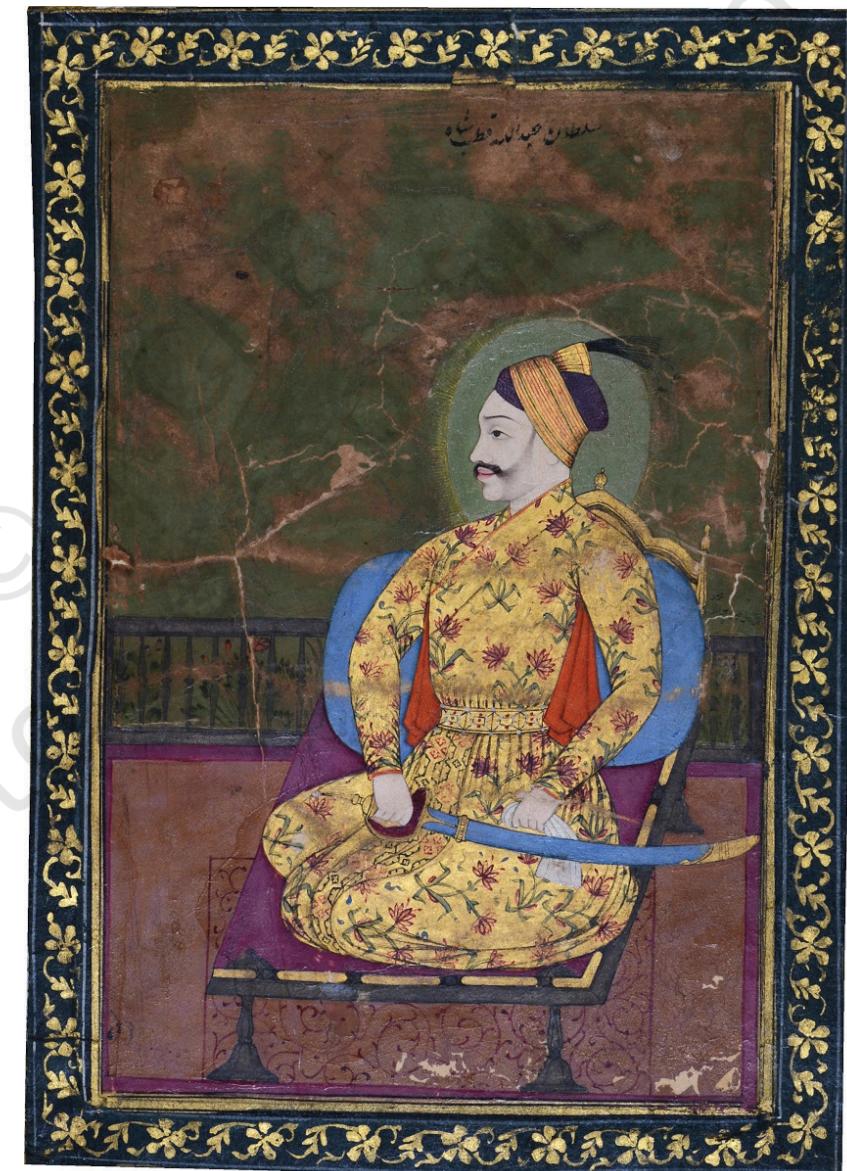 سلطان عبدالله قطب شاه